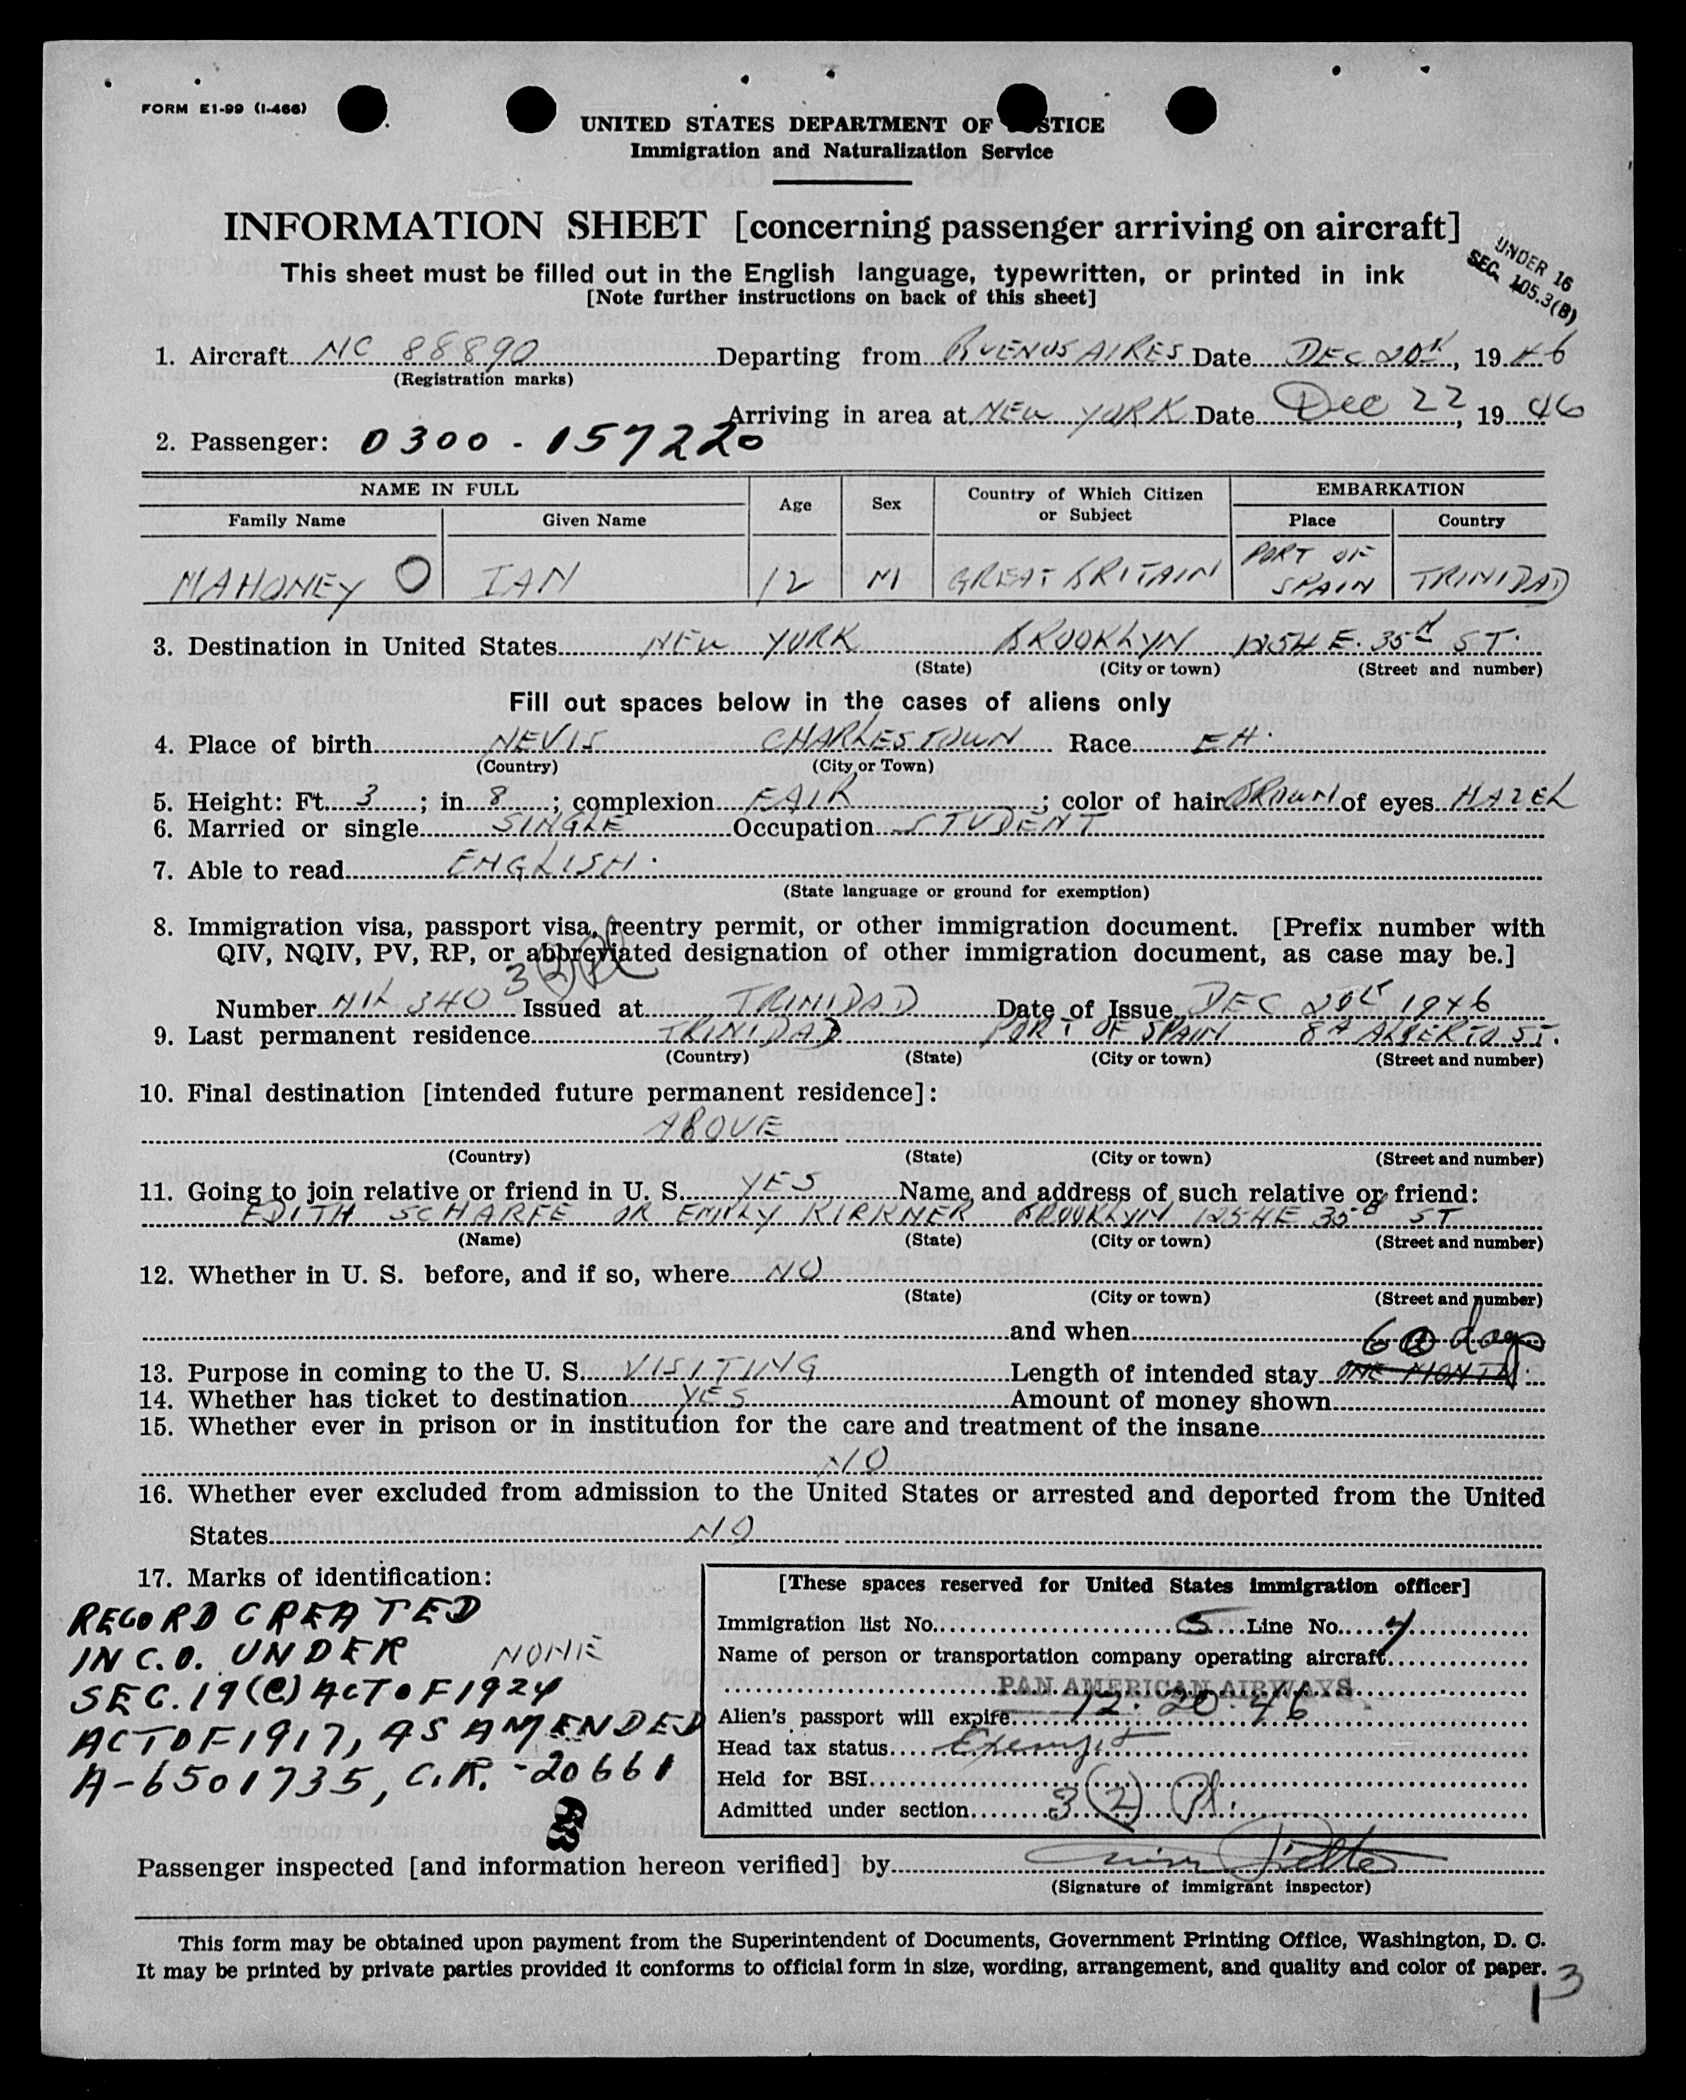 FORM E1-99 (I-466)
UNITED STATES DEPARTMENT OF JUSTICE
Immigration and Naturalization Service
INFORMATION SHEET [concerning passenger arriving on aircraft]
UNDER 16
SEC. 105.3(B)
This sheet must be filled out in the English language, typewritten, or printed in ink
[Note further instructions on back of this sheet]
1. Aircraft NC 88890 Departing from BUENOS AIRES Date DEC 20th, 1946
(Registration marks)
Arriving in area at NEW YORK Date Dec 22, 1946
2. Passenger: 0300-157220
NAME IN FULL Age Sex Country of Which Citizen or Subject EMBARKATION
Family Name Given Name Place Country
MAHONEY O IAN 12 M GREAT BRITAIN PORT OF SPAIN TRINIDAD
3. Destination in United States NEW YORK BROOKLYN 1254 E. 35th ST.
(State) (City or town) (Street and number)
Fill out spaces below in the cases of aliens only
4. Place of birth NEVIS CHARLESTOWN Race EH.
(Country) (City or Town)
5. Height: Ft. 3; in. 8; complexion FAIR; color of hair BROWN of eyes HAZEL
6. Married or single SINGLE Occupation STUDENT
7. Able to read ENGLISH.
(State language or ground for exemption)
8. Immigration visa, passport visa, reentry permit, or other immigration document. [Prefix number with
QIV, NQIV, PV, RP, or abbreviated designation of other immigration document, as case may be.]
3 (2)
Number 340 Issued at TRINIDAD Date of Issue DEC 20th 1946
9. Last permanent residence TRINIDAD PORT OF SPAIN 8A ALBERTO ST.
(Country) (State) (City or town) (Street and number)
10. Final destination [intended future permanent residence]:
ABOVE
(Country) (State) (City or town) (Street and number)
11. Going to join relative or friend in U. S. YES Name and address of such relative or friend:
EDITH SCHARFE OR EMILY KIRKNER BROOKLYN 1254 E 35th ST
(Name) (State) (City or town) (Street and number)
12. Whether in U. S. before, and if so, where NO
(State) (City or town) (Street and number)
and when
60 days
13. Purpose in coming to the U. S. VISITING Length of intended stay ONE MONTH
14. Whether has ticket to destination YES Amount of money shown
15. Whether ever in prison or in institution for the care and treatment of the insane
NO
16. Whether ever excluded from admission to the United States or arrested and deported from the United
States NO
17. Marks of identification:
NONE
RECORD CREATED
IN C.O. UNDER
SEC. 19(C) ACT OF 1924
ACT OF 1917, AS AMENDED
A-6501735, C.R.-20661
[These spaces reserved for United States immigration officer]
Immigration list No. 5 Line No. 4
Name of person or transportation company operating aircraft
PAN AMERICAN AIRWAYS
Alien's passport will expire 12-20-46
Head tax status Exempt
Held for BSI
Admitted under section 3 (2)
Passenger inspected [and information hereon verified] by
(Signature of immigrant inspector)
This form may be obtained upon payment from the Superintendent of Documents, Government Printing Office, Washington, D. C.
It may be printed by private parties provided it conforms to official form in size, wording, arrangement, and quality and color of paper.
13